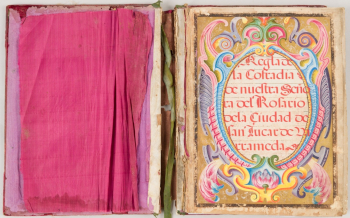 Regla de
la Cofradia
de nuestra Seño
ra del Rosario
dela Ciudad de
san Lucar de Ba
rrameda